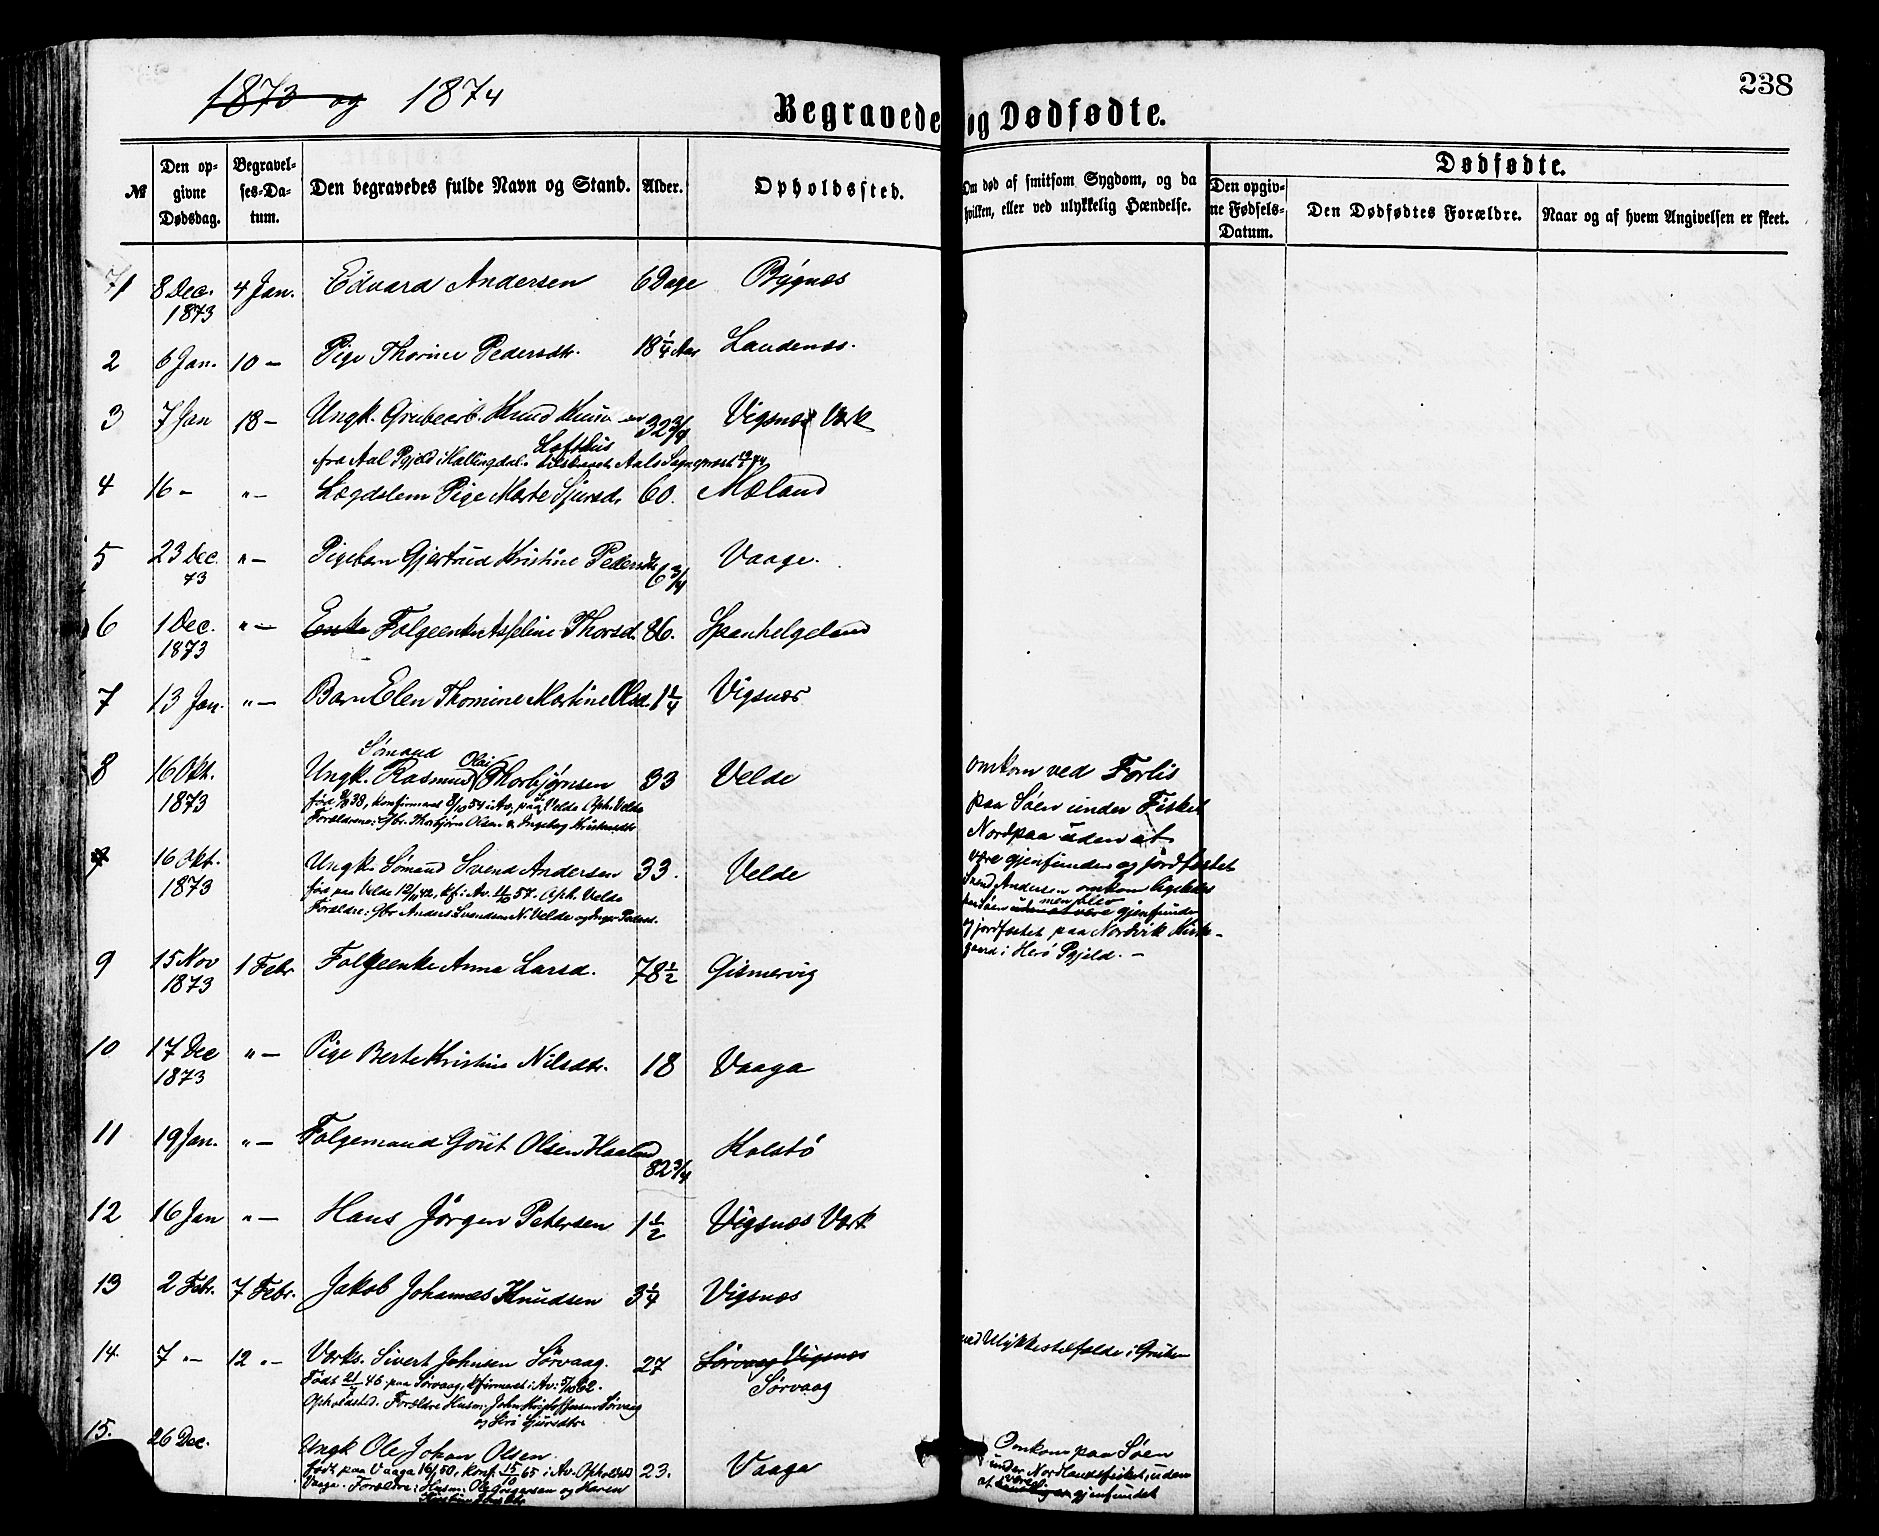 238
1873 og 1874
Begravede og Dødfødte.
№
Den opgivne Dødsdag.
Begravelses-Datum.
Den begravedes fulde Navn og Stand.
Alder.
Opholdssted.
Om død af smitsom Sygdom, og da hvilken, eller ved ulykkelig Hændelse.
Dødfødte.
Den opgivne Fødsels-Datum.
Den Dødfødtes Forældre.
Naar og af hvem Angivelsen er skeet.
1 8 Dec. 1873 4 Jan. Edvard Andersen 6 Dage Bygnæs
2 6 Jan. 10 – Pige Thorine Pedersdtr. 18 1/4 Aar Landenæs.
3 7 Jan 18 – Ungk. Grubearb. Knud 32 3/4 Vigsnæs Værk
fra Aal Pgjeld i Hallingdal. Lofthus Aals Sognepræst
4 16 – " – Lægdslem Pige Marte Sjursd. 60. Mæland
5 23 Dec. 73 " – Pigebarn Gjertrud Kristine Pedersdtr 6 3/4 Vaage.
6 1 Dec. 1873 " – Enke Folgeenke Asseline Thorsd. 86. Spanhelgeland
7 13 Jan. " – Barn Elen Thomine Martine Olsd. 1 1/4 Vigsnæs
8 16 Okt. 1873 Ungk. Sømand Rasmus Olai Thorbjørnsen 33 Velde
født 38, konfirmeret 54 i Av. paa Velde Oph. Velde
Forældrene: Gbr. Thorbjørn Olsen & Ingeborg
omkom ved Forlis
paa Søen under Fisket
Nordpaa uden at
være gjenfunden og jordfæstet
16 Okt. 1873 Ungk. Sømand Svend Andersen 33. Velde
født paa Velde 12/11 42, kf. i Av. 57. Oph. Velde
Forældre: Gbr Anders Svendsen N. Velde og Inger Peders.
Svend Andersen omkom ligeledes
paa Søen uden at være men blev gjenfunden
og jordfæstet paa Nordvik Kirke-
gaard i Herø Pgjeld. –
9 15 Nov 1873 1 Febr Folgeenke Anna Larsd. 78 1/2 Gismervig
10 17 Dec 1873 " – Pige Berte Kristine Nilsdtr. 18 Vaaga
11 19 Jan. " – Folgemand Gout Olsen Haaland 82 3/4 Kolstø
12 16 Jan " – Hans Jörgen Petersen 1 1/2 Vigsnæs Værk
13 2 Febr. 7 Febr. Jakob Johannes Knudsen 3 1/4 Vigsnæs
14. 7 " – 12 " – Værks. Sivert Johnsen Sørvaag. 27 Sørvaag Vigsnæs Sørvaag
Født 21/7 46 paa Sørvaag, kfirmeret i Av: 62.
Opholdsted. Forældre Husm: John Kristoffersen Sørvaag
og Siri Sjursdtr.
ved Ulykkestilfælde i Gruben
15. 26 Dec. Ungk Ole Johan Olsen 23. Vaaga
født paa Vaaga 50, konf. 15/10 65 i Av. Opholdst
Vaage. Forældre: Husm: Ole Gregersen og Karen
Omkom paa Søen
under Nordlandsfisket, uden
at være gjenfundet